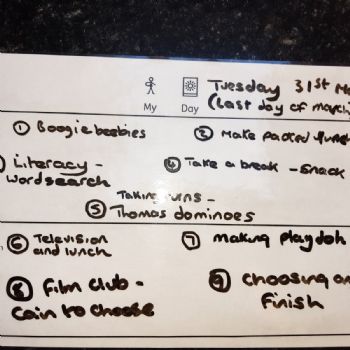 My Day Tuesday 31st
(Last day of march)
① Boogie beebies ② Make packed
Literacy - ④ Take a break - snack
wordsearch
Taking turns -
⑤ Thomas dominoes
⑥ Television ⑦ making playdoh
and lunch
⑧ Film club - ⑨ choosing
Cain to choose Finish